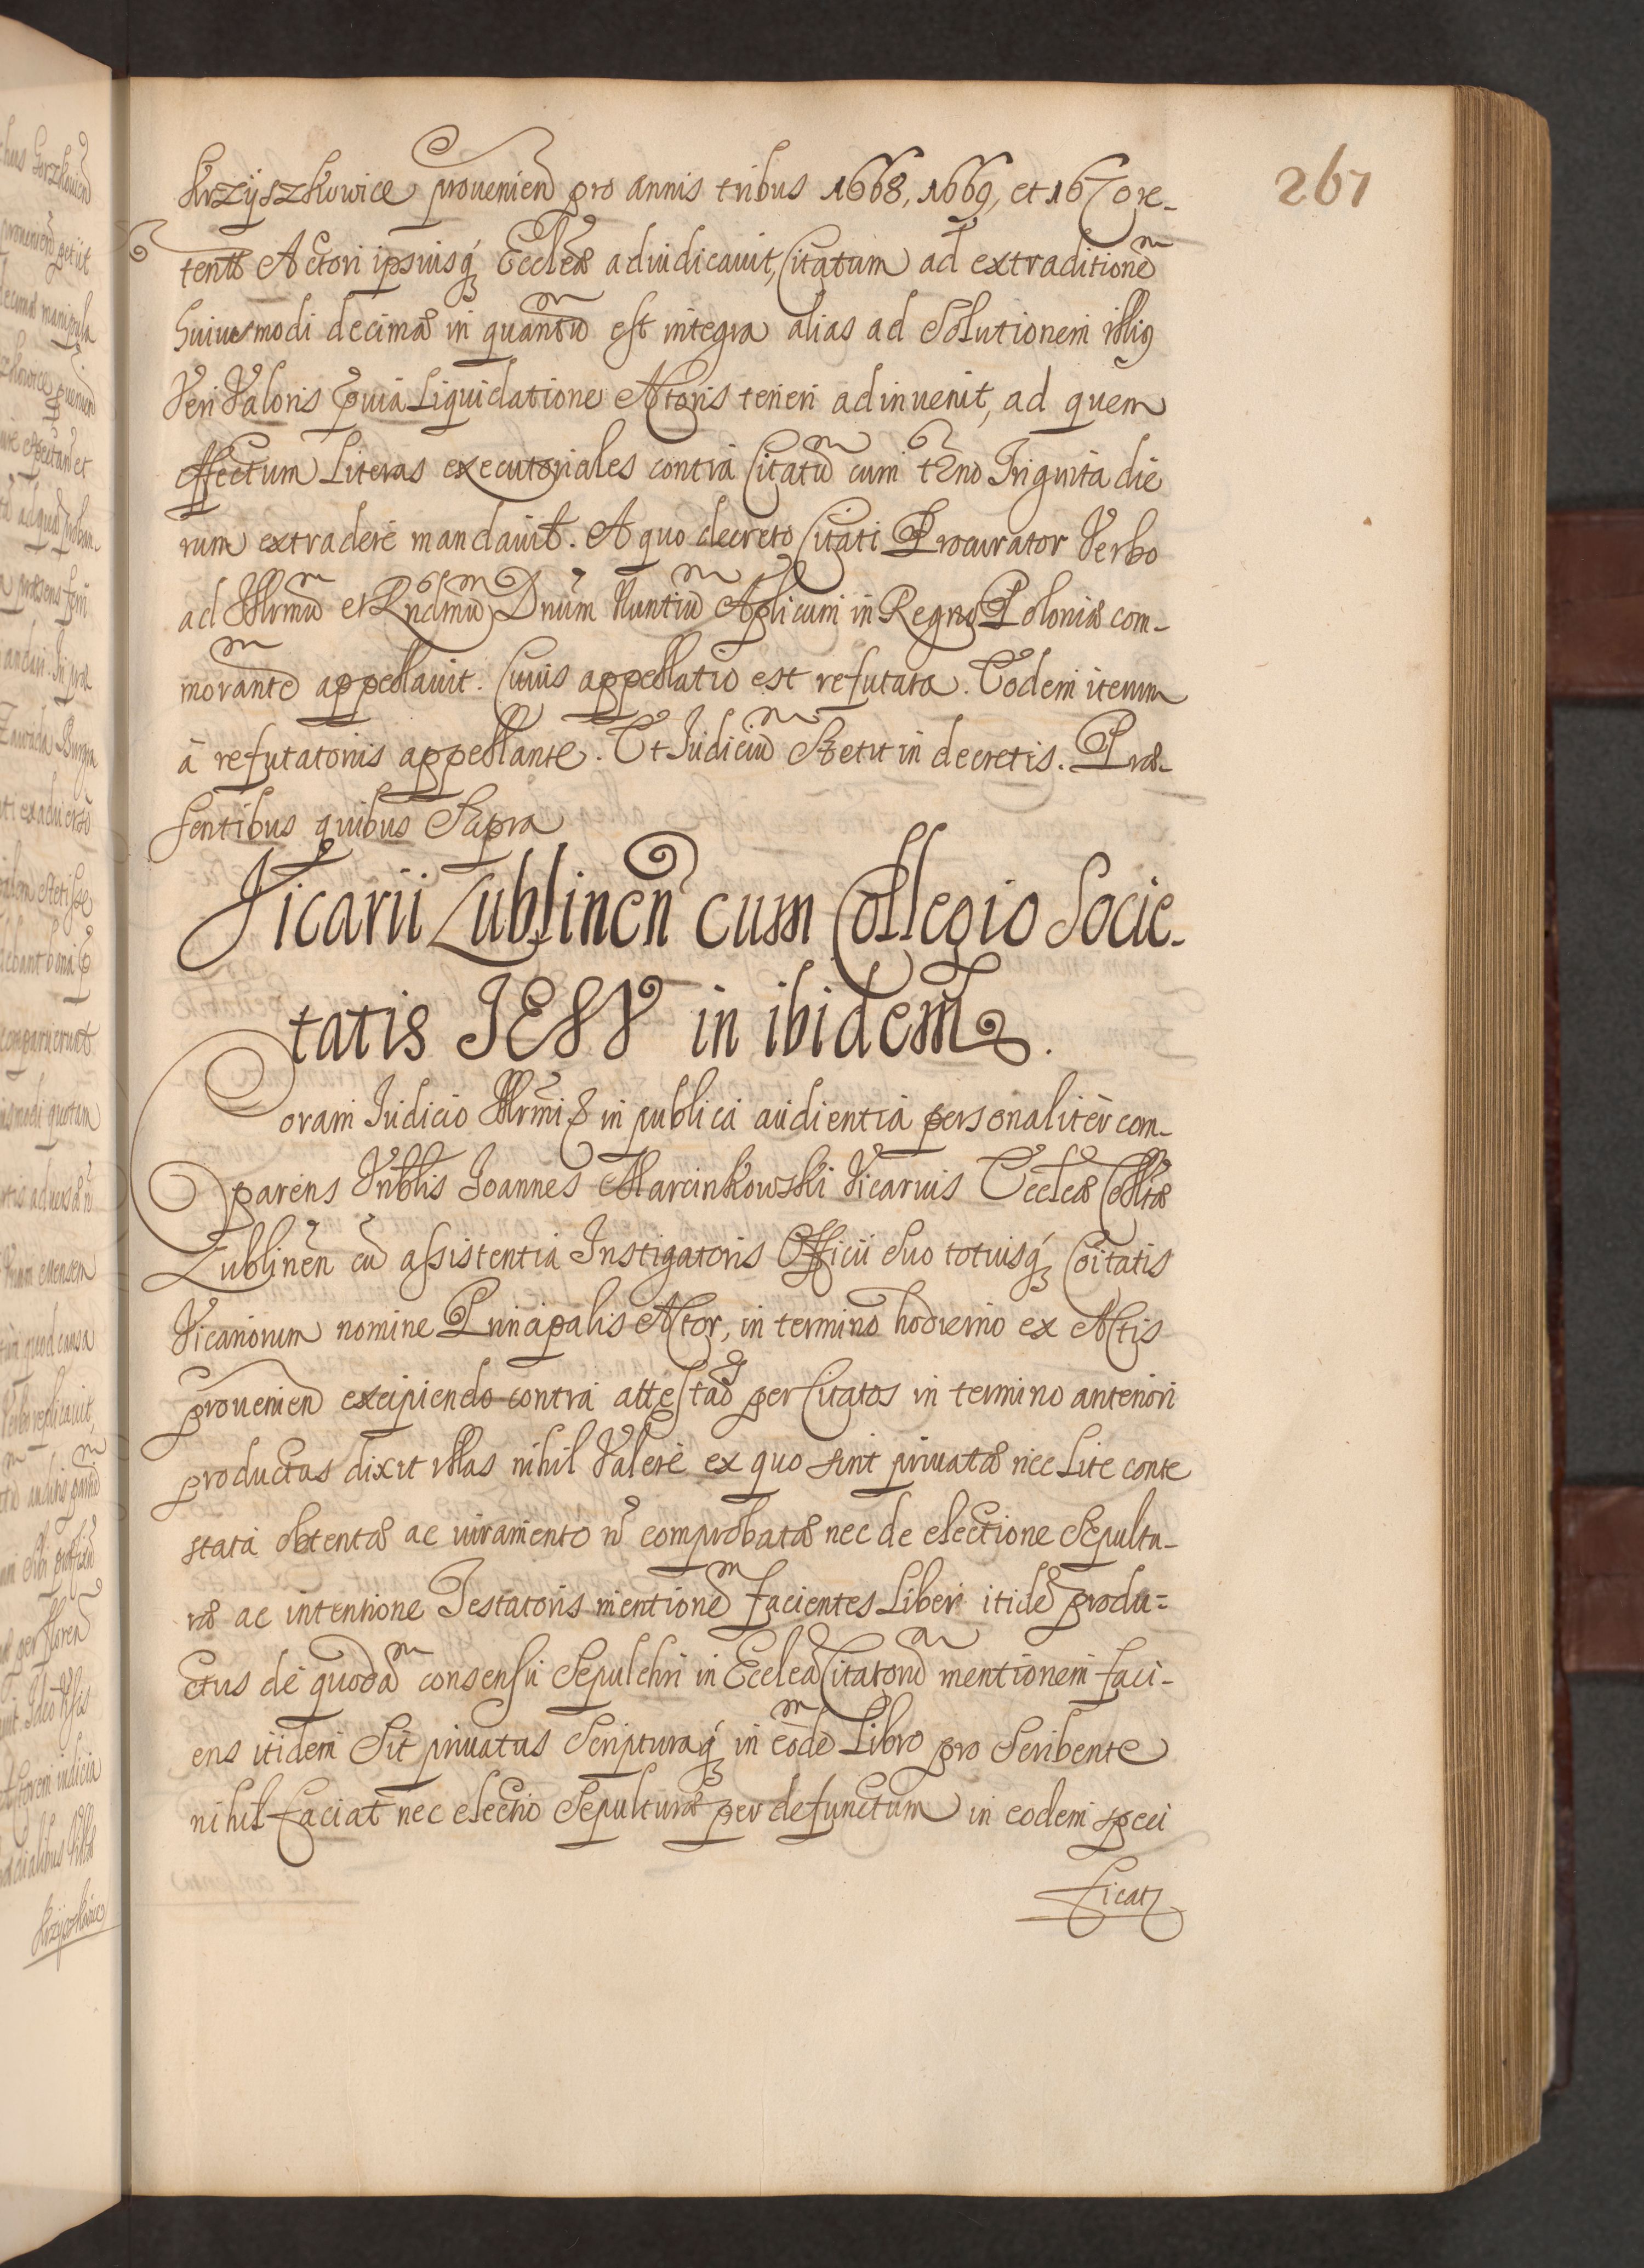 267
Krzyszkowice prouenień pro annis tribus 1668, 1669, et 1670 re-
tentæ Actori ipsiusq́ Ecclæ adiudicauit, Citatum ad extraditionē
huiusmodi decimæ in quantū est integra alias ad Solutionem illiꝰ
Veri Valoris prȩuia Liquidatione Actoris teneri adinuenit, ad quem
effectum Literas executoriales contra Citatū cum tẽno Triginta die
rum extradere mandauit. A quo decreto Citati Procurator Verbo
ad Illrmū et Rndmū Dnum Nuntiū Aplicum in Regno Poloniæ com-
morantē appellauit. Cuius appellatio est refutata. Eodem iterum
à refutatorijs appellante. Et Iudiciū Stetit in decretis. Præ-
sentibus quibus Supra
Vicarii Lublineñ cum Collegio Socie-
tatis IESV in ibidem.
Coram Iudicio Illrmi S in publica audientia personaliter com-
parens Vnblis Ioannes Marcinkowski Vicarius Ecclæ Colltæ
Lublineñ cū assistentia Instigatoris Officii suo totiusq́ Coitatis
Vicariorum nomine Principalis Actor, in termino hodierno ex Actis
prouenień excipiendo contra attestāōes per Citatos in termino anteriori
productas dixit illas nihil Valere ex quo sint priuatæ nec Lite conte
stata obtentæ ac iuramento n̄ comprobatæ nec de electione Sepultu-
ræ ac intentione Testatoris mentionē facientes Liber itidē produ=
ctus de quodā consensu Sepulchri in Ecclea Citatorū mentionem faci-
ens itidem Sit priuatus Scripturaq́ in eodē Libro pro Scribente
nihil faciat nec electio Sepulturæ per defunctum in eodem speci
ficat⁊